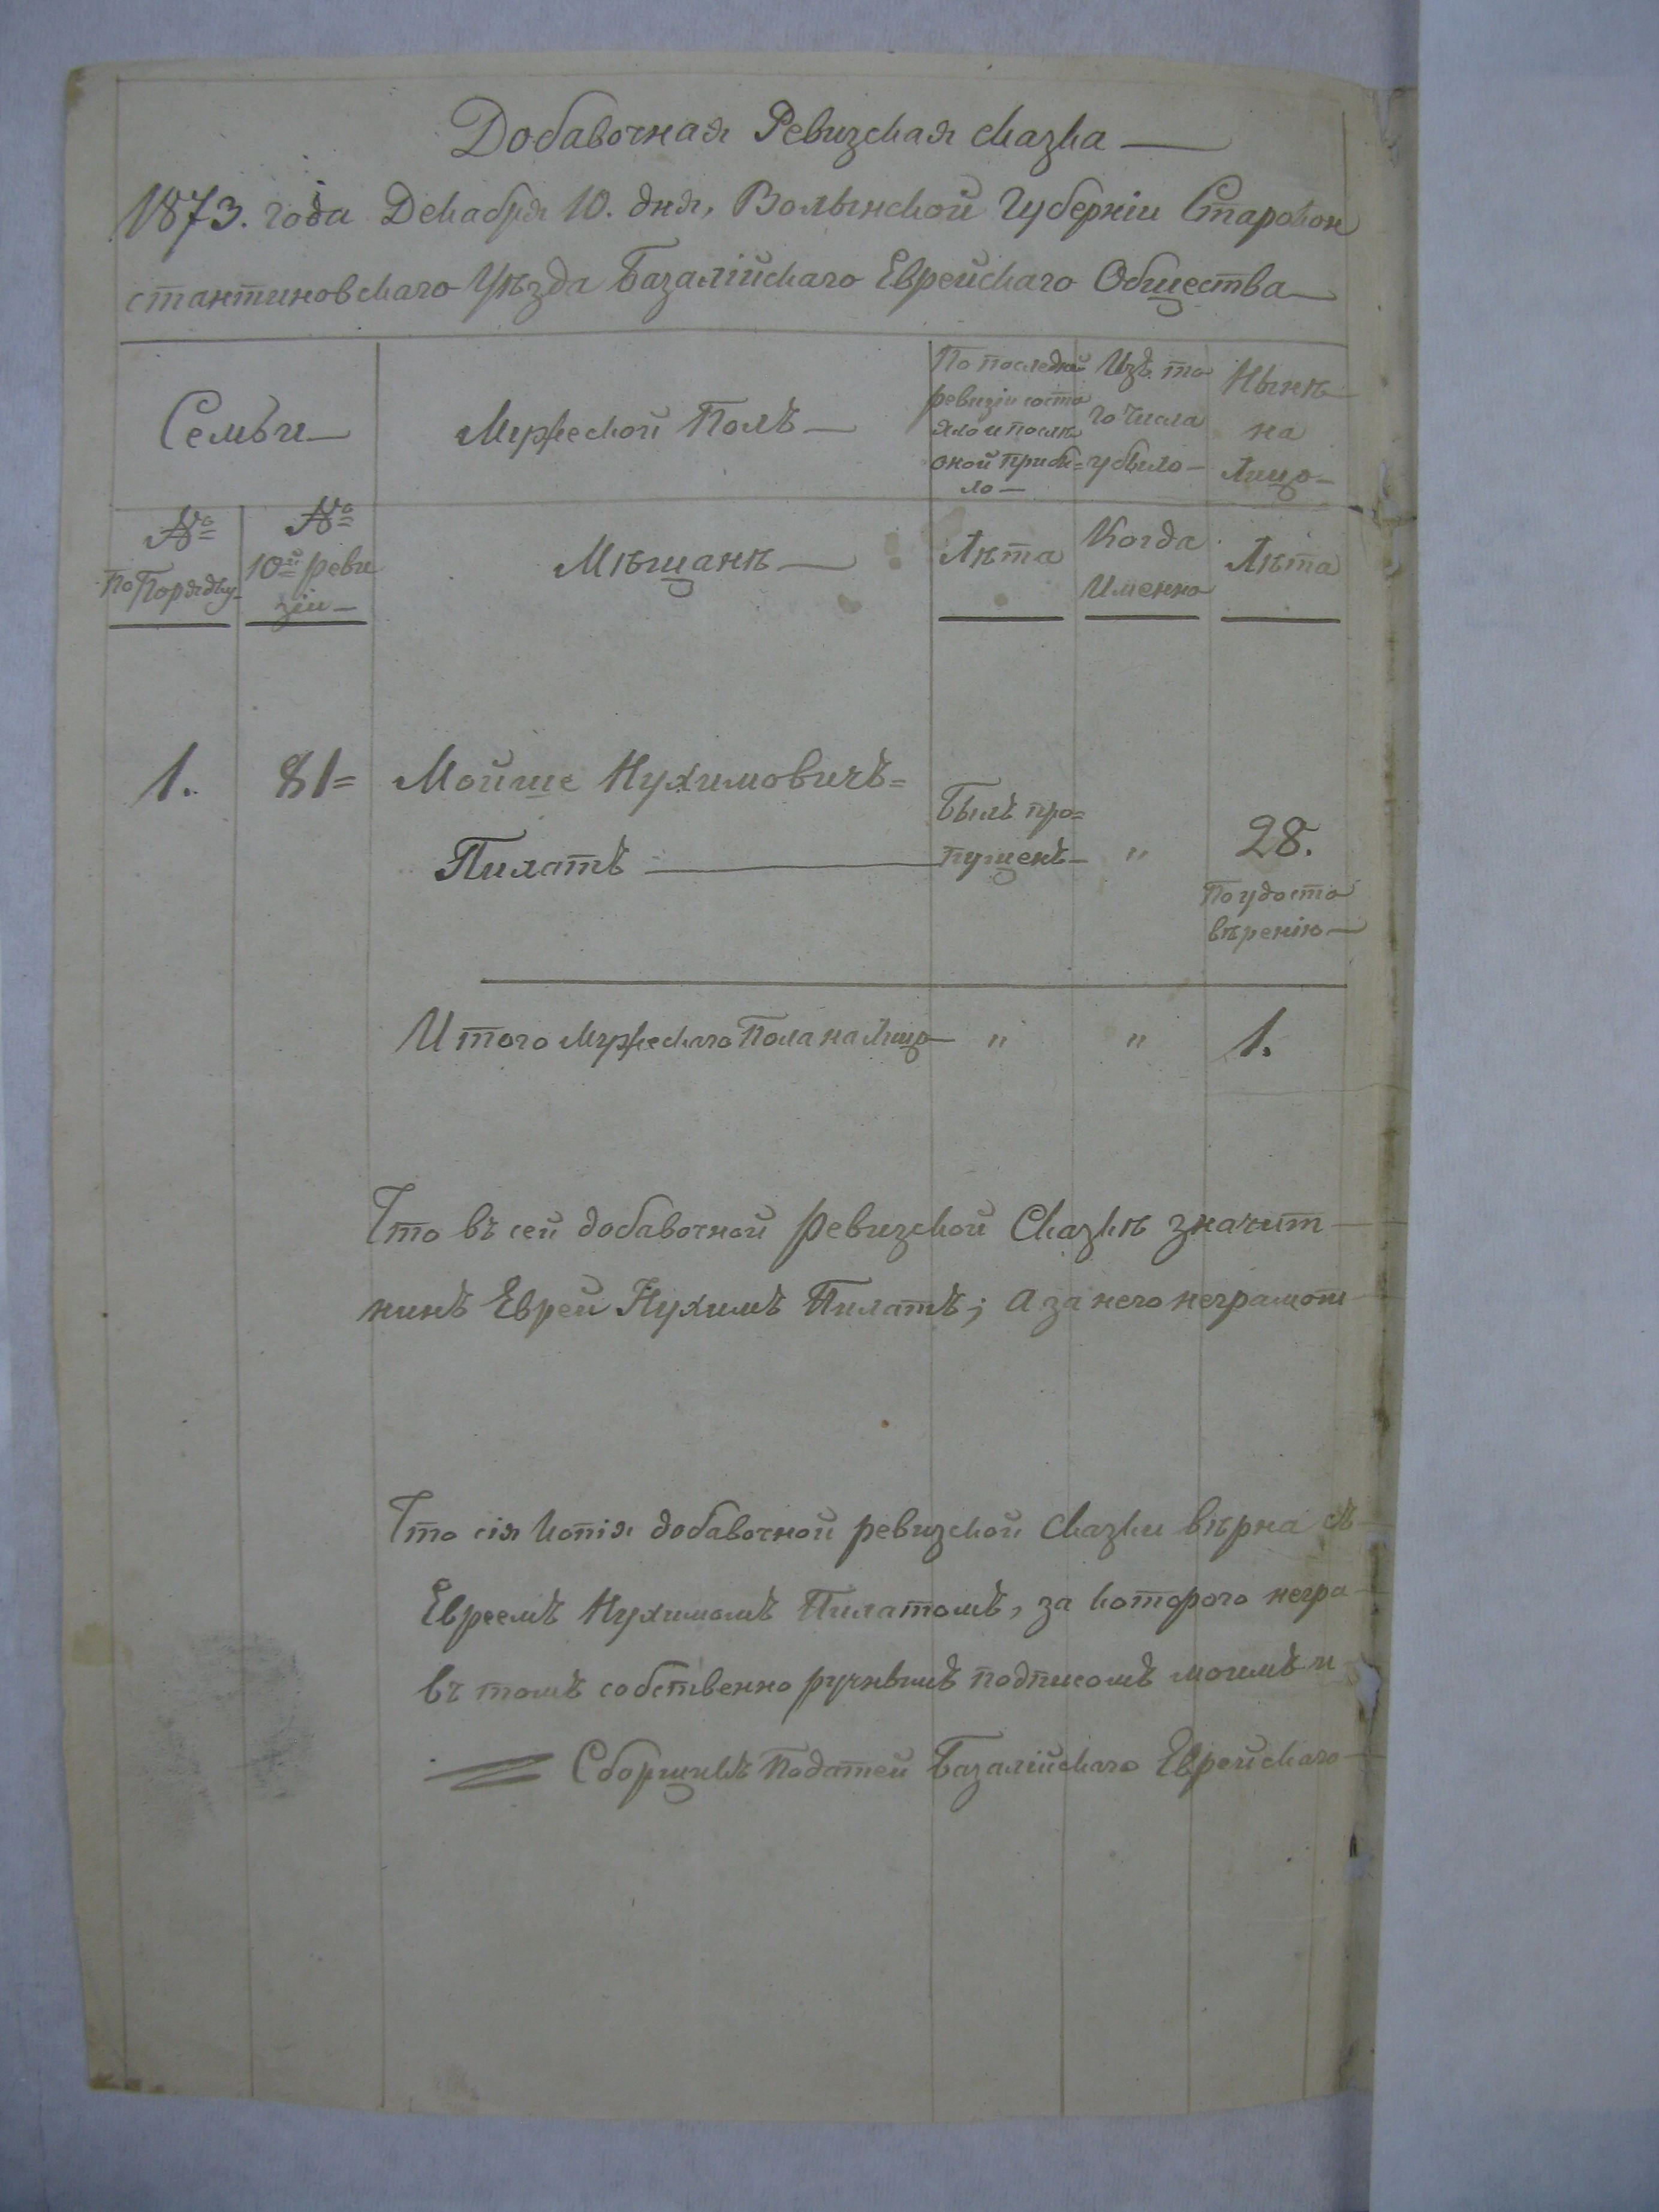 Добавочная Ревизская сказка —
1873. года Декабря 10. дня, Волынской Губерніи Старокон
стантиновскаго Уѣзда Базалійскаго Еврейскаго Общества —
Семьи —
Мужеской Полъ —
По последней
ревизіи состо
яло и послѣ
оной прибы=
ло —
Изъ то
го числа
убыло —
Нынѣ
на
Лицо —
№
По Порядку
№
10й реви
зіи —
Мѣщанѣ —
Лѣта
Когда
Именно
Лѣта
1.
81=
Мойше Нухимовичъ=
Пилатъ —
Былъ про=
пущенъ —
"
28.
По удосто
вѣренію —
Итого Мужескаго Пола на Лицо — " " 1.
Что въ сей добавочной ревизской Сказкѣ значит
нинъ Еврей Нухимъ Пилатъ; а за него неграмот
Что сія Копія добавочной ревизской Сказки вѣрна съ
Евреемъ Нухимомъ Пилатомъ, за которого негра
въ томъ собственно ручнымъ подписомъ моимъ и
Сборщикъ Податей Базалійскаго Еврейскаго